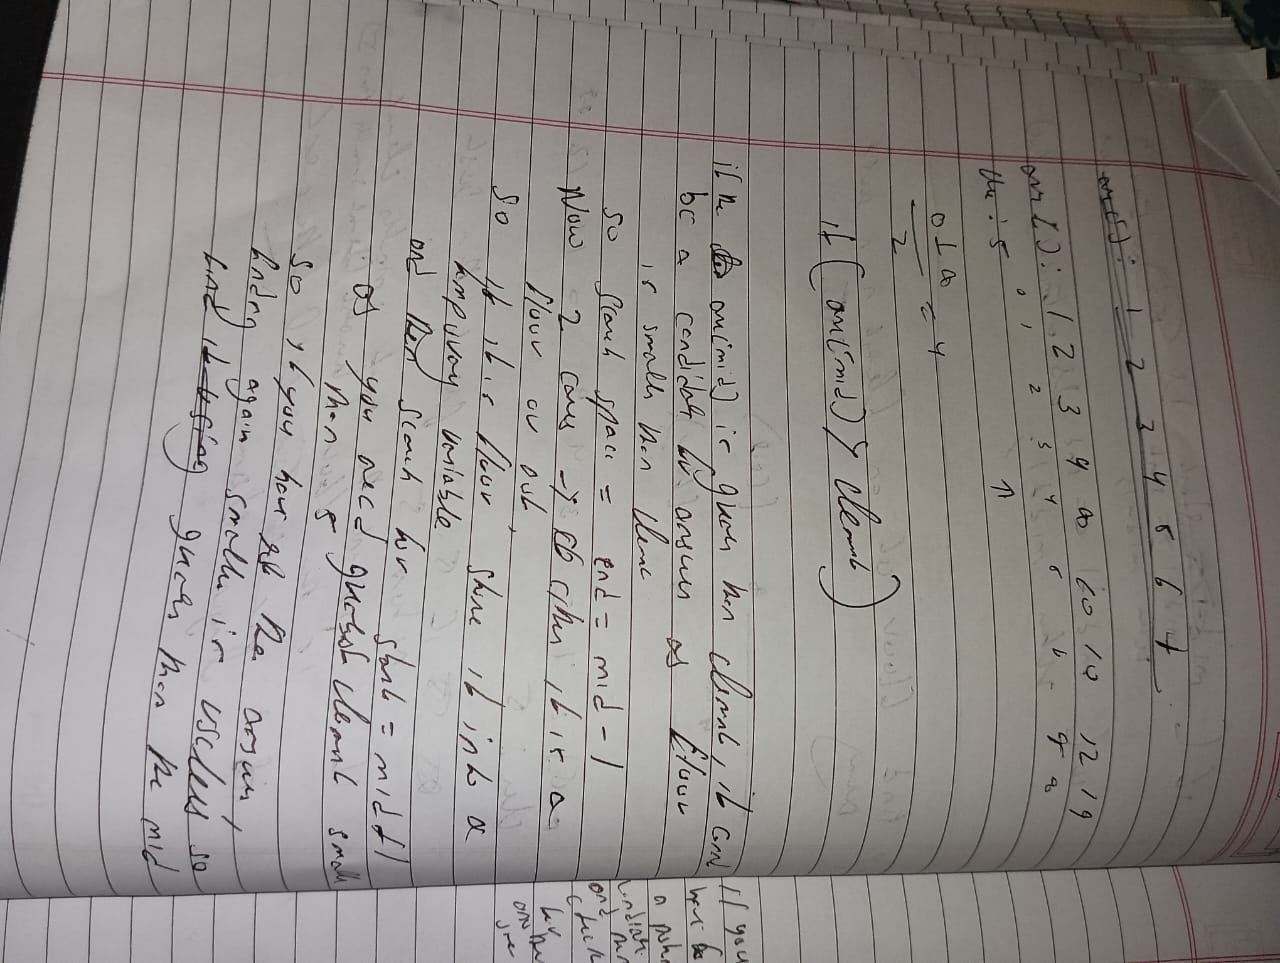 arr[]: 1 2 3 4 5 6 7
arr[]: 1 2 3 4 8 10 10 12 19
0 1 2 3 4 5 6 7 8
ele: 5
0+8 = 4
2
if (arr[mid] > element)
if the arr[mid] is greater than element, it cant
be a candidate for answer as floor
is smaller than element
So search space = end = mid - 1
Now 2 cases → either it is a
floor or not.
So if it is floor store it into a
temporary variable
and then search for start = mid + 1
as you need greatest element smaller
than 5
So if you have the answer,
finding again smaller is useless so
find greater than the mid
If you